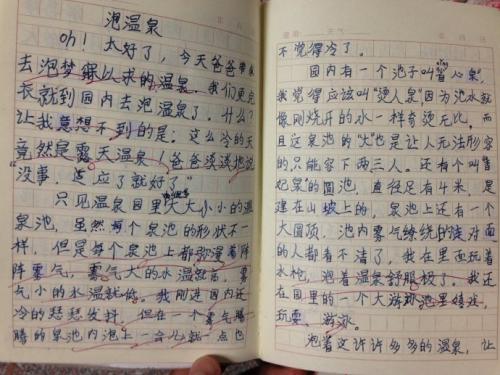 泡温泉
oh！太好了，今天爸爸带我
去泡梦寐以求的温泉。我们更完
衣就到园内去泡温泉了。什么？
让我意想不到的是：这么冷的天
竟然是露天温泉！爸爸淡淡地说：
“没事，适应了就好了”
只见温泉园里大大小小的温
泉池，虽然每个泉池的形状不一
样，但是每个泉池上都弥漫着阵
阵雾气，雾气大的水温就高，雾
气小的水温就低。我刚进园内还
冷的瑟瑟发抖，但在一个雾气腾
腾的泉池内泡上一会儿就一点也
不觉得冷了。
园内有一个池子叫心泉，
我觉得应该叫“烫人泉”因为池水就
像刚烧开的水一样奇烫无比，而
且这泉池的“火”也是让人无法形容
的只能容下两三人。还有个叫“贵
妃泉”的圆池，直径足有4米，是
建在山坡上的，泉池上还有一个
大圆顶，池内雾气缭绕的使对面
的人都看不清了。我在里面玩着
水枪，泡着温泉舒服极了。我还
在园里的一个大游泳池里嬉戏，
玩耍、游泳。
泡着这许许多多的温泉，让